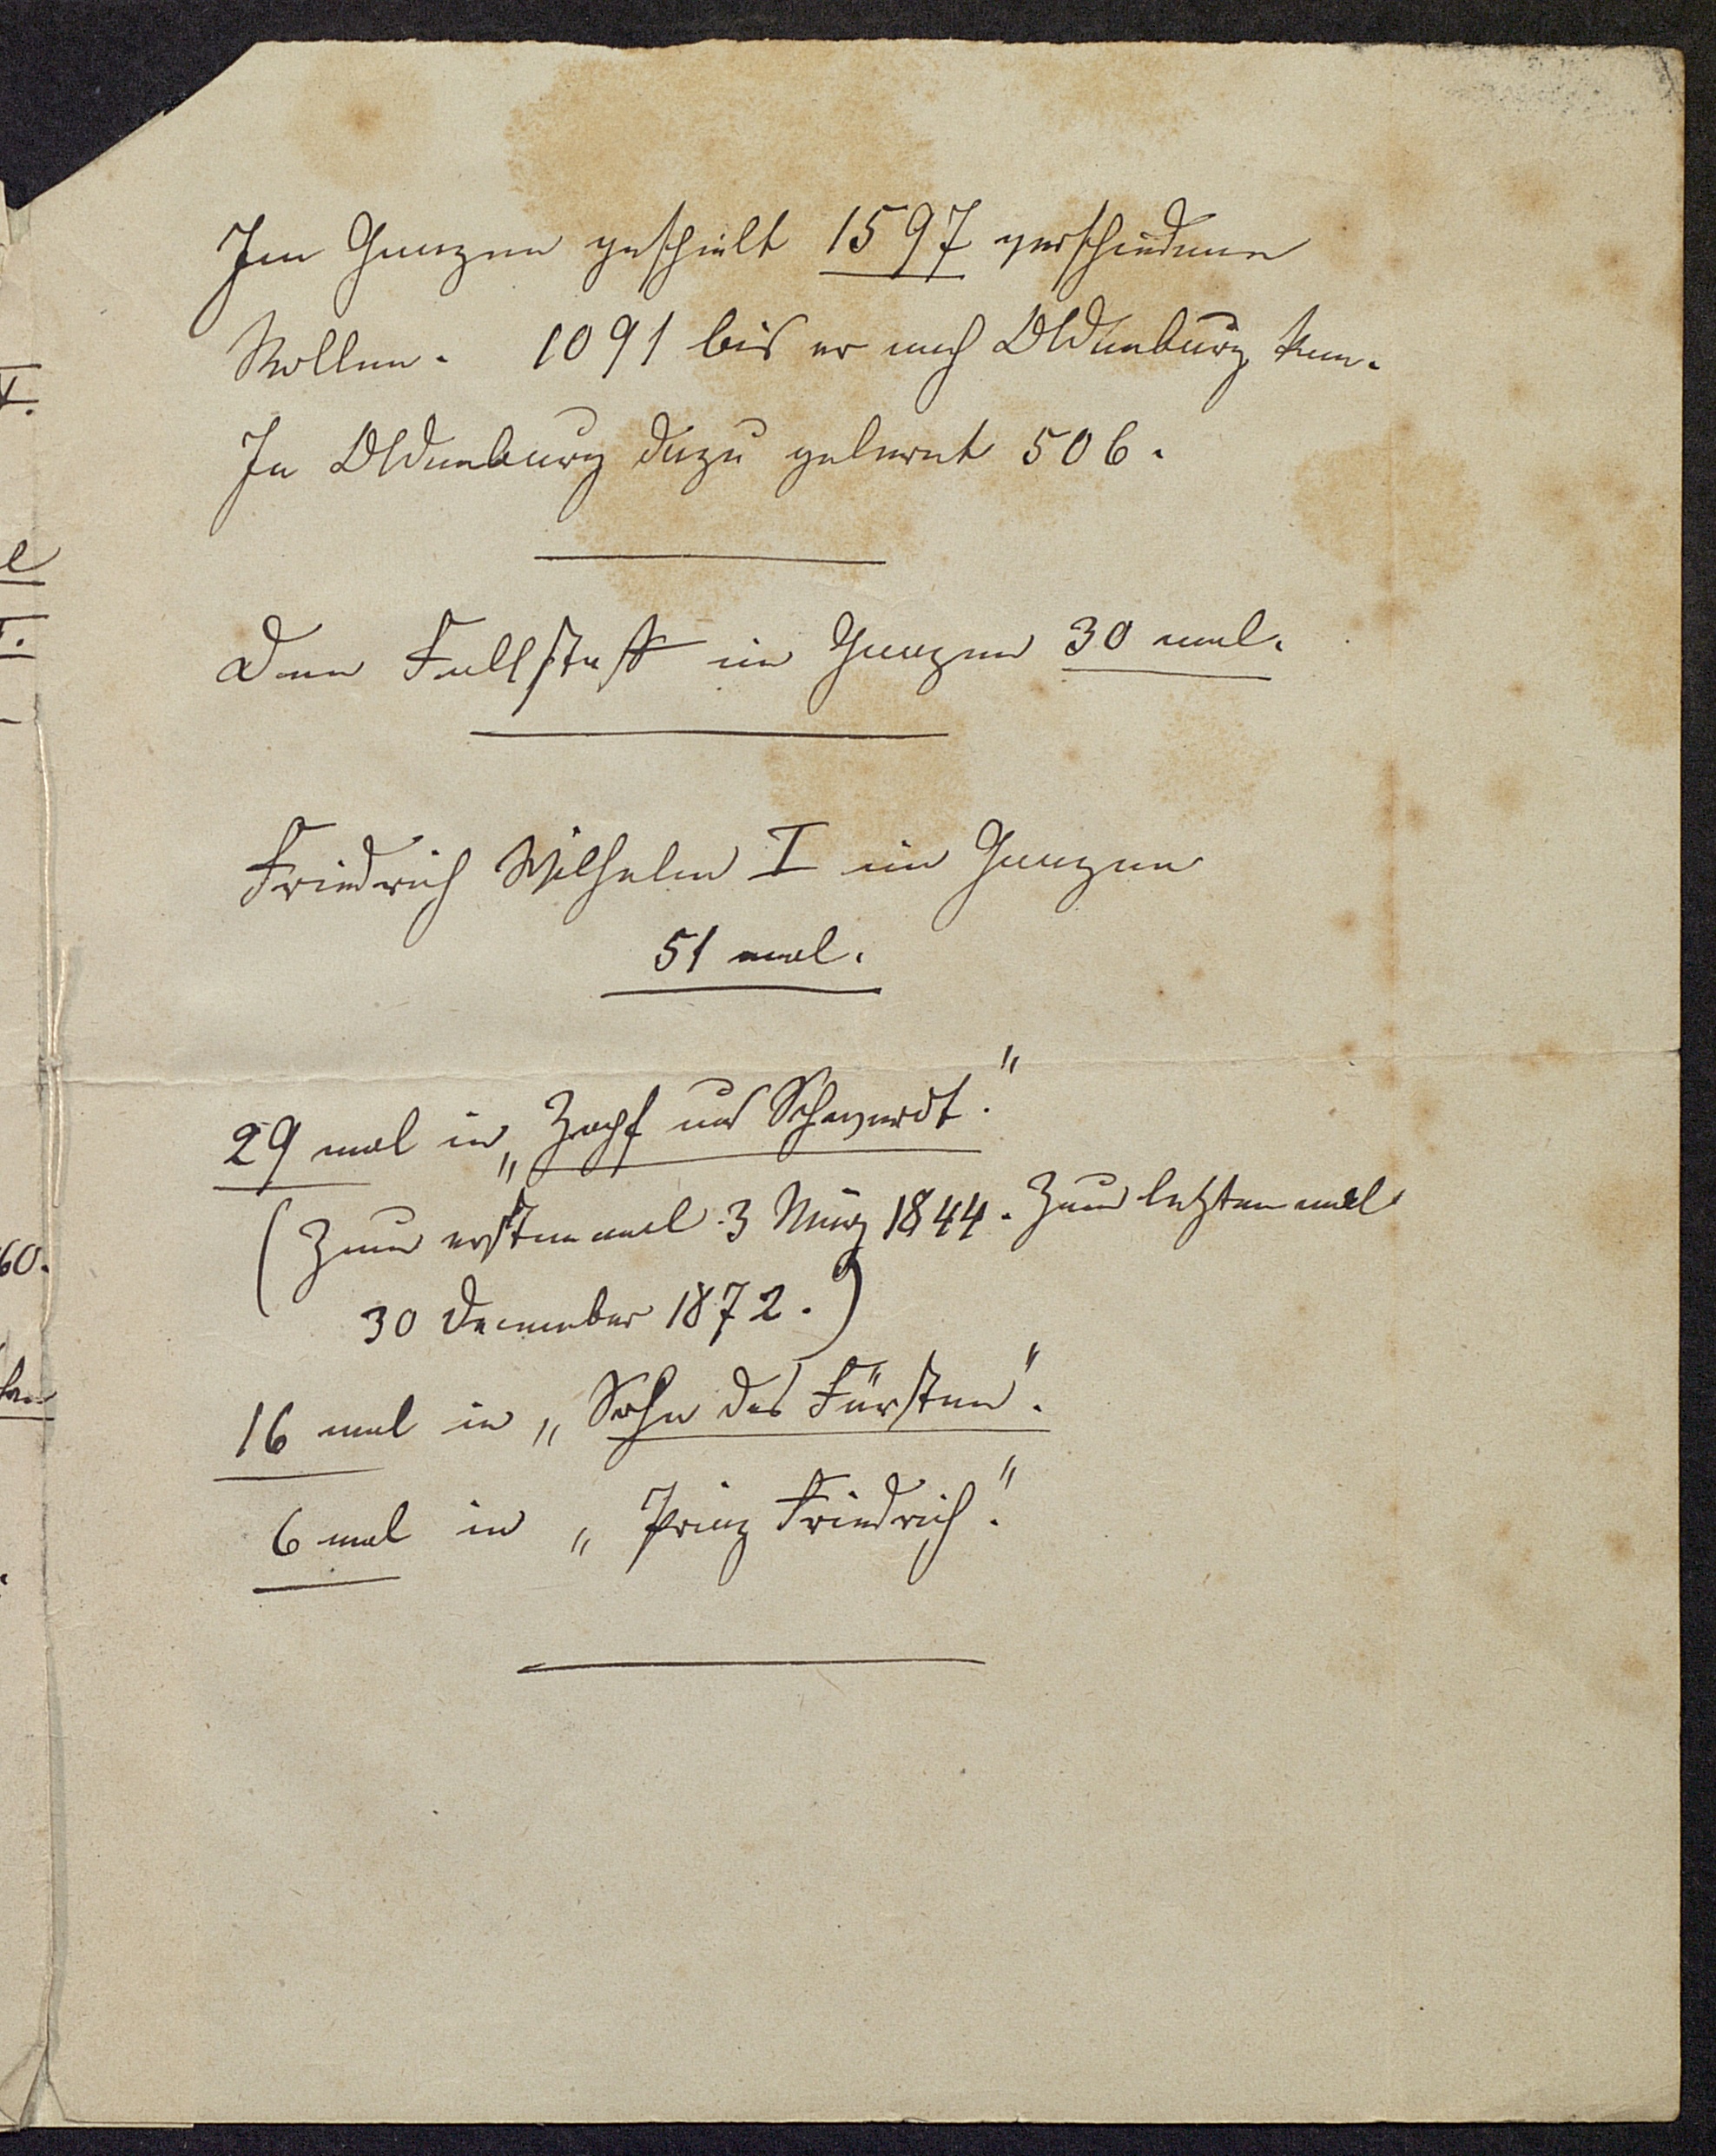 Im Ganzen gespielt 1597 verschiedene
Rollen. 1091 bis er nach Oldenburg kam.
In Oldenburg dazu gelernt 506.
Den Fallstaff im Ganzen 30 mal.
Friedrich Wilhelm I im Ganzen
51 mal.
29 mal in „Zopf und Schwerdt."
(Zum erstenmal 3 März 1844. Zum letztenmal
30 December 1872.)
16 mal in „Sohn des Fürsten".
6 mal in „Prinz Friedrich."